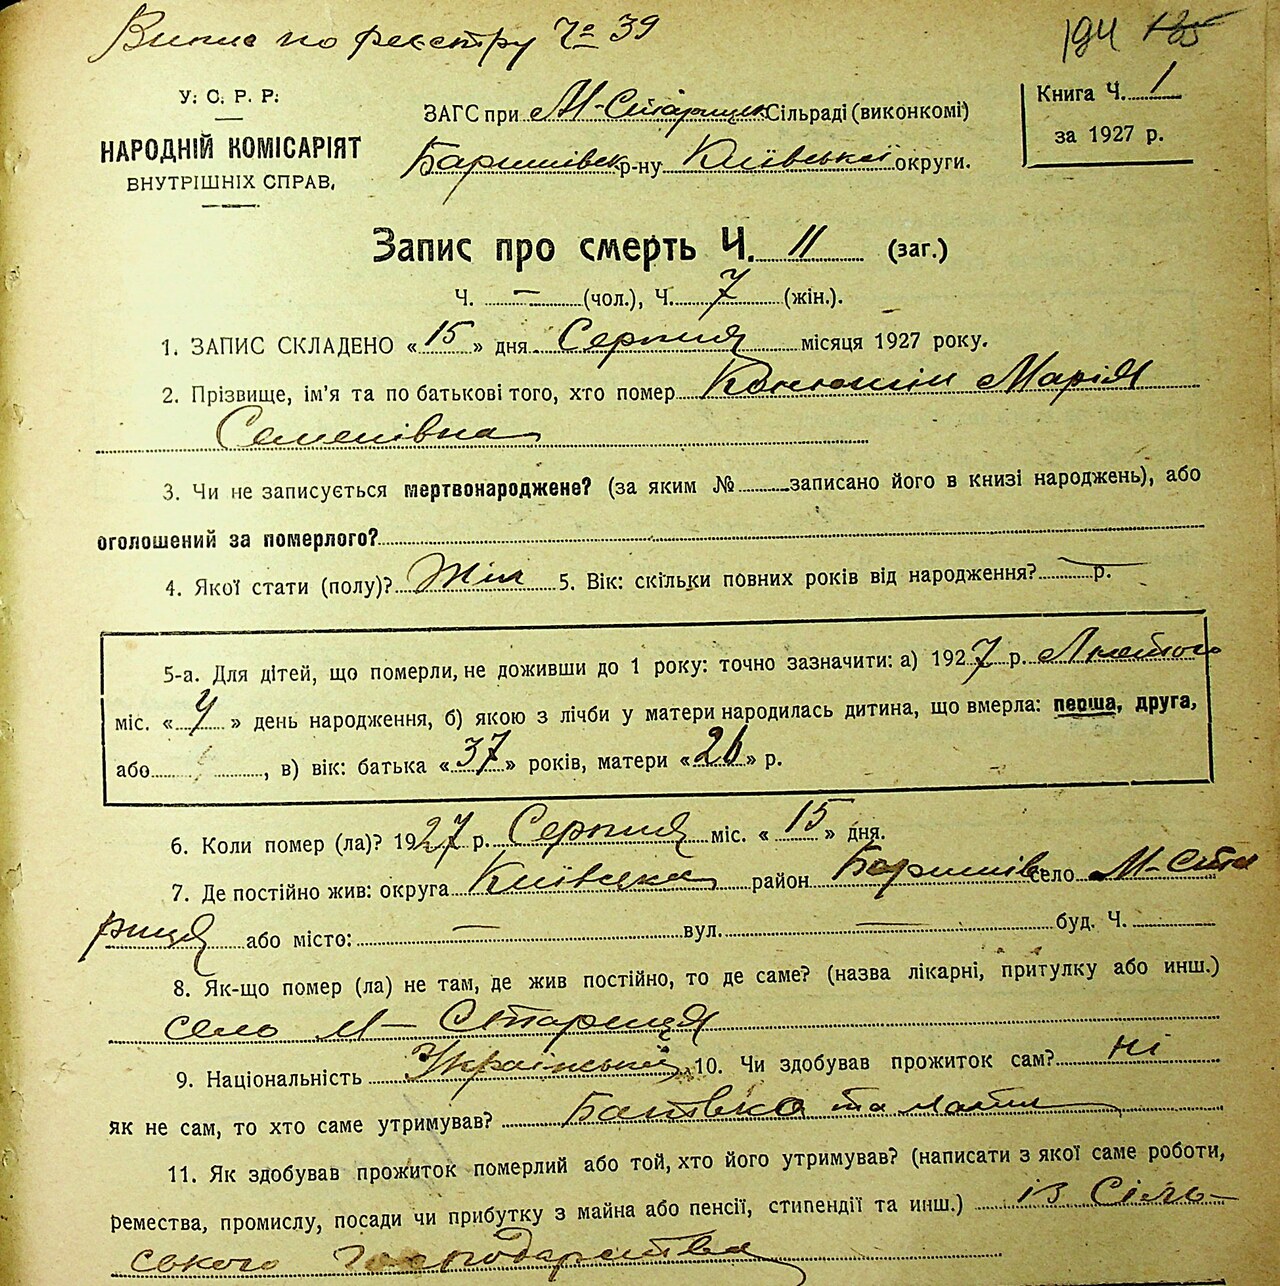 Випис по реєстру Чо 39
194 125
У. С. Р. Р.
НАРОДНІЙ КОМІСАРІЯТ
ВНУТРІШНІХ СПРАВ.
ЗАГС при М-Старицьк Сільраді (виконкомі)
Баришівськ р-ну Київської округи.
Книга Ч. 1
за 1927 р.
Запис про смерть Ч. 11 (заг.)
Ч. — (чол.), Ч. 7 (жін.).
1. ЗАПИС СКЛАДЕНО « 15 » дня Серпня місяця 1927 року.
2. Прізвище, ім'я та по батькові того, хто помер Марія
Семенівна
3. Чи не записується мертвонароджене? (за яким № записано його в книзі народжень), або
оголошений за померлого?
4. Якої стати (полу)? Жін 5. Вік: скільки повних років від народження? — р.
5-а. Для дітей, що померли, не доживши до 1 року: точно зазначити: а) 1927 р. Лютого
міс. « » день народження, б) якою з лічби у матери народилась дитина, що вмерла: перша, друга,
або , в) вік: батька « 37 » років, матери « 26 » р.
6. Коли помер (ла)? 1927 р. Серпня міс. « 15 » дня.
7. Де постійно жив: округа Київська район Баришів село М-Ста
риця або місто: — вул. — буд. Ч.
8. Як-що помер (ла) не там, де жив постійно, то де саме? (назва лікарні, притулку або инш.)
село М-Стариця
9. Національність Українській 10. Чи здобував прожиток сам? ні
як не сам, то хто саме утримував? Батько та мати
11. Як здобував прожиток померлий або той, хто його утримував? (написати з якої саме роботи,
ремества, промислу, посади чи прибутку з майна або пенсії, стипендії та инш.) із Сіль-
ського господарства